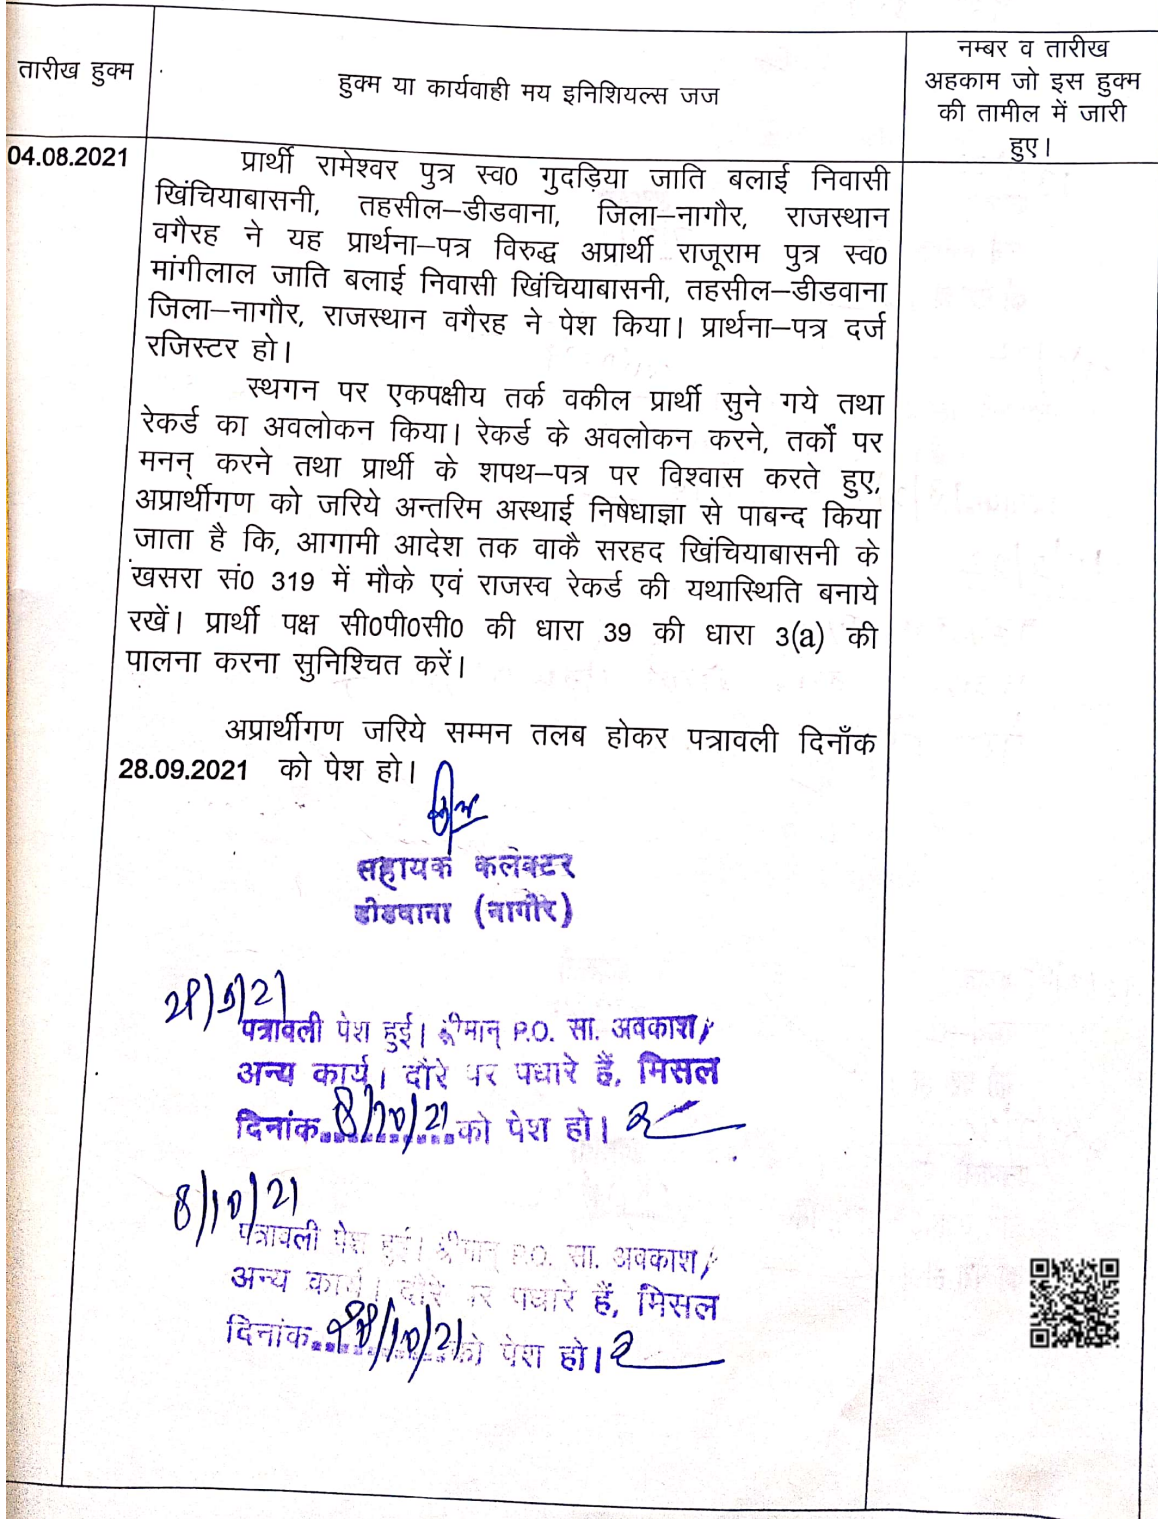 तारीख हुक्म
हुक्म या कार्यवाही मय इनिशियल्स जज
नम्बर व तारीख
अहकाम जो इस हुक्म
की तामील में जारी
हुए।
04.08.2021
प्रार्थी रामेश्वर पुत्र स्व0 गुदड़िया जाति बलाई निवासी
खिंचियाबासनी, तहसील–डीडवाना, जिला–नागौर, राजस्थान
वगैरह ने यह प्रार्थना–पत्र विरुद्ध अप्रार्थी राजूराम पुत्र स्व0
मांगीलाल जाति बलाई निवासी खिंचियाबासनी, तहसील–डीडवाना
जिला–नागौर, राजस्थान वगैरह ने पेश किया। प्रार्थना–पत्र दर्ज
रजिस्टर हो।
स्थगन पर एकपक्षीय तर्क वकील प्रार्थी सुने गये तथा
रेकर्ड का अवलोकन किया। रेकर्ड के अवलोकन करने, तर्कों पर
मनन् करने तथा प्रार्थी के शपथ–पत्र पर विश्वास करते हुए,
अप्रार्थीगण को जरिये अन्तरिम अस्थाई निषेधाज्ञा से पाबन्द किया
जाता है कि, आगामी आदेश तक वाकै सरहद खिंचियाबासनी के
खसरा सं0 319 में मौके एवं राजस्व रेकर्ड की यथास्थिति बनाये
रखें। प्रार्थी पक्ष सी0पी0सी0 की धारा 39 की धारा 3(a) की
पालना करना सुनिश्चित करें।
अप्रार्थीगण जरिये सम्मन तलब होकर पत्रावली दिनाँक
28.09.2021 को पेश हो।
सहायक कलेक्टर
डीडवाना (नागौर)
पत्रावली पेश हुई। श्रीमान् P.O. सा. अवकाश/
अन्य कार्य। दौरे पर पधारे हैं, मिसल
दिनांक 8/10/21 को पेश हो।
8/10/21
पत्रावली पेश हुई। श्रीमान् P.O. सा. अवकाश/
अन्य कार्य। दौरे पर पधारे हैं, मिसल
दिनांक /10/21 को पेश हो।